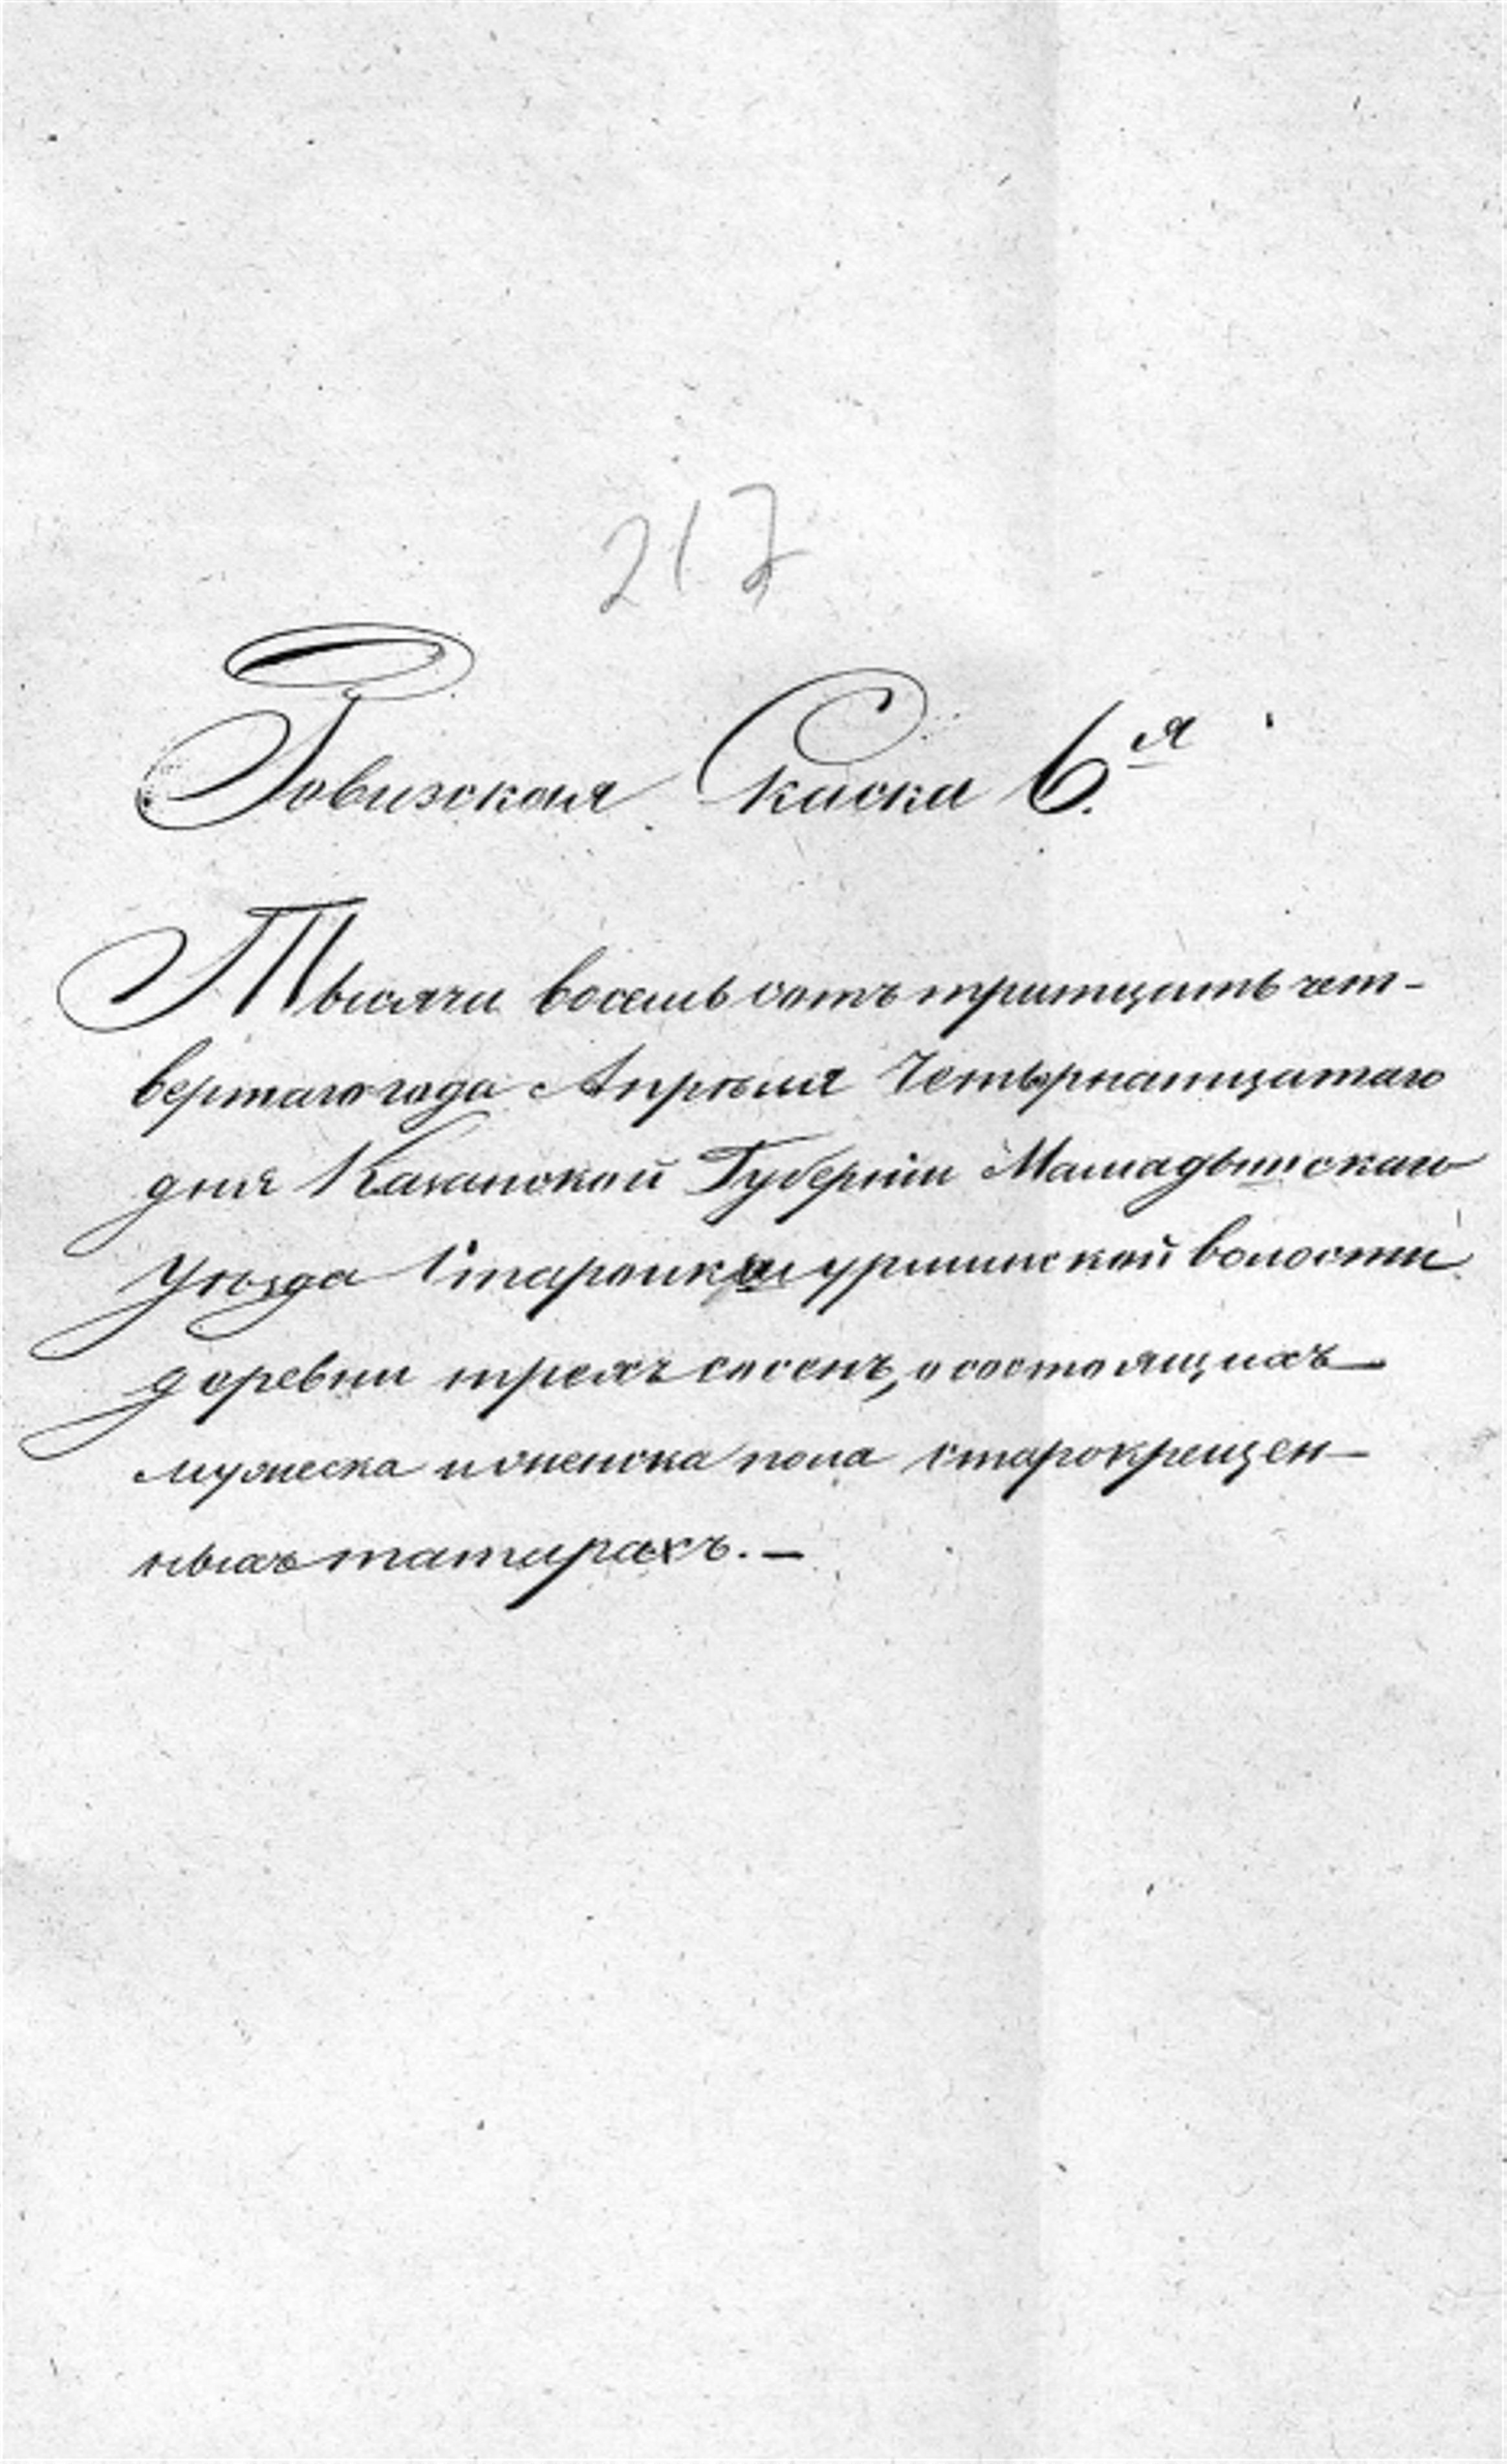 217
Ревизская Скаска 6.я
Тысяча восемь сотъ тритцать чет-
вертаго года Апрѣля Четырнатцатаго
дня Казанской Губерніи Мамадышскаго
Уѣзда волости
деревни трехъ сосенъ, о состоящихъ
мужеска и женска пола старокрещен-
ныхъ татарахъ. —